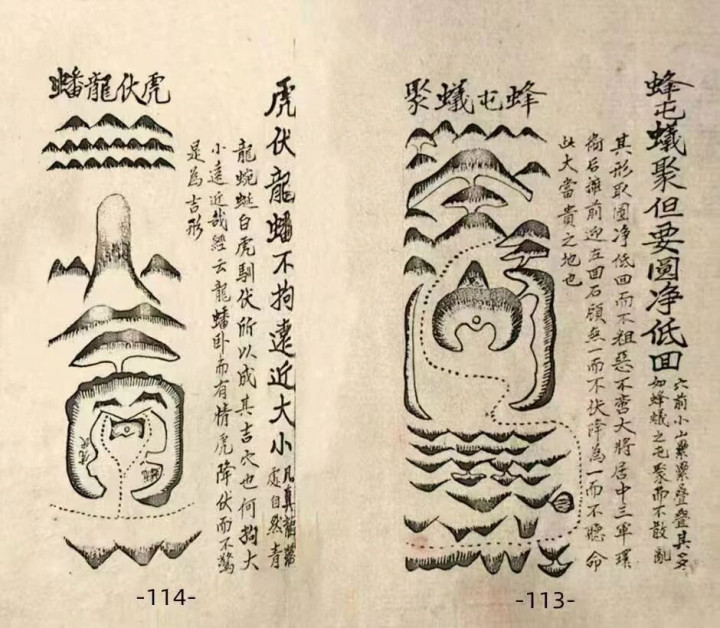 蜂屯蟻聚但要圓净低回
穴前小山纍纍疊疊其多
如蜂蟻之屯聚而不散亂
其形取圓净低回而不粗惡不啻大將居中三軍環
衛后擁前迎左回石顧無一而不伏降為一而不聽命
此大富貴之地也
蜂屯蟻聚
-113-
虎伏龍蟠不拘遠近大小
凡真龍落
處自然青
龍蜿蜒白虎馴伏所以成其吉穴也何拘大
小遠近哉經云龍蟠卧而有情虎降伏而不驚
是為吉形
虎伏龍蟠
-114-